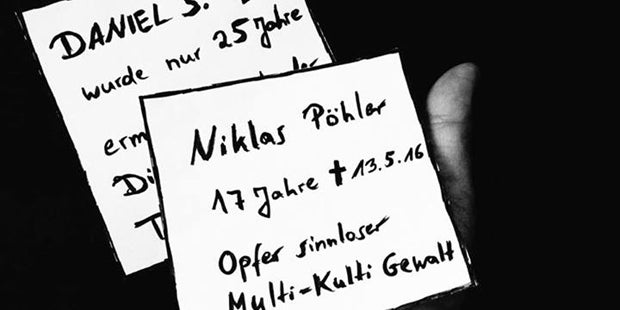 DANIEL S.
wurde nur 25 Jahre
erm
Di
T
Niklas Pöhler
17 Jahre ✝ 13.5.16
Opfer sinnloser
Multi-Kulti Gewalt